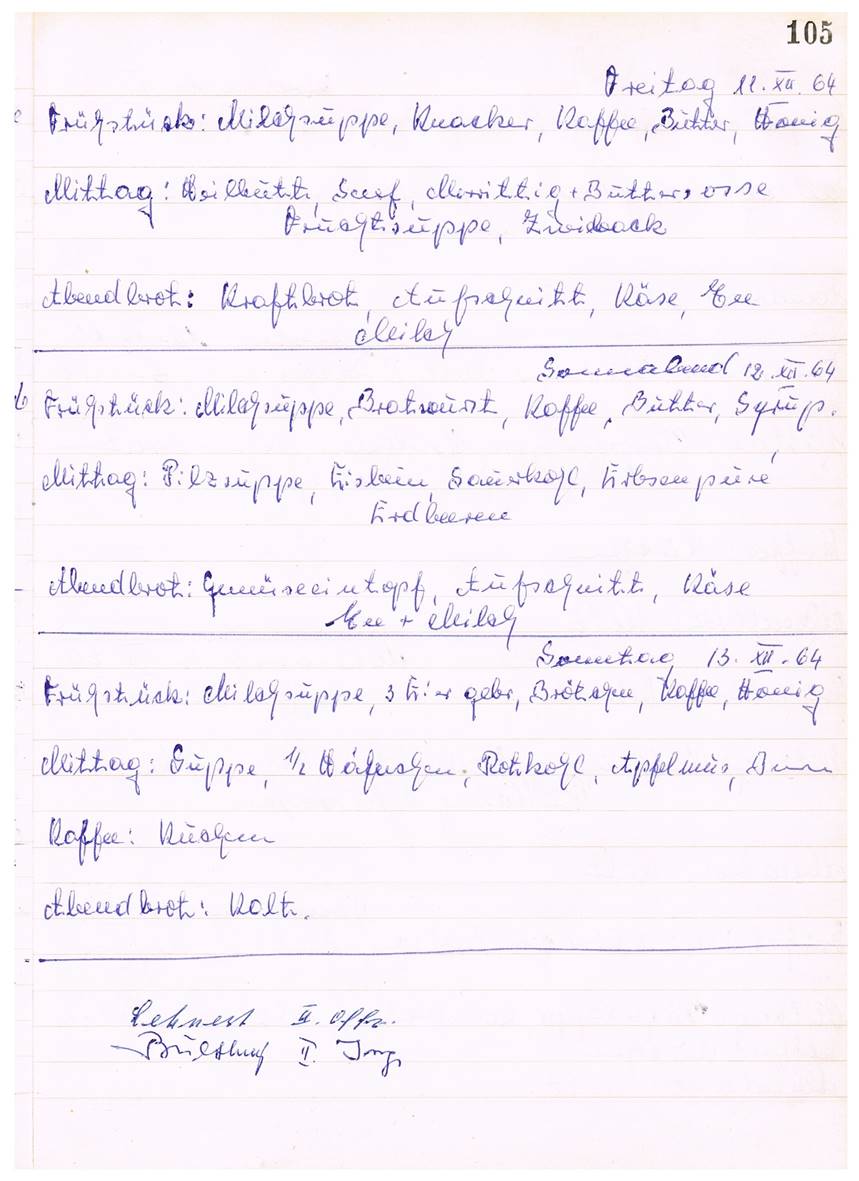 105
Freitag 11. XII. 64
Frühstück: Milchsuppe, Knacker, Kaffee, Butter, Honig
Mittag: Heilbutt, Senf, + Buttersosse
Fruchtsuppe, Zwieback
Abendbrot: Kraftbrot, Aufschnitt, Käse, Tee
Milch
Sonnabend 12. XII. 64
Frühstück: Milchsuppe, Bratwurst, Kaffee, Butter, Syrup.
Mittag: Pilzsuppe, Eisbein, Sauerkohl, Erbsenpüré
Erdbeeren
Abendbrot: Gemüseeintopf, Aufschnitt, Käse
Tee + Milch
Sonntag 13. XII. 64
Frühstück: Milchsuppe, 3 Eier gebr, Brötchen, Kaffee, Honig
Mittag: Suppe, 1/2 Hähnchen, Rotkohl, Apfelmus,
Kaffee: Kuchen
Abendbrot: Kalt.
Lehnert II. Offz.
II. Ing.